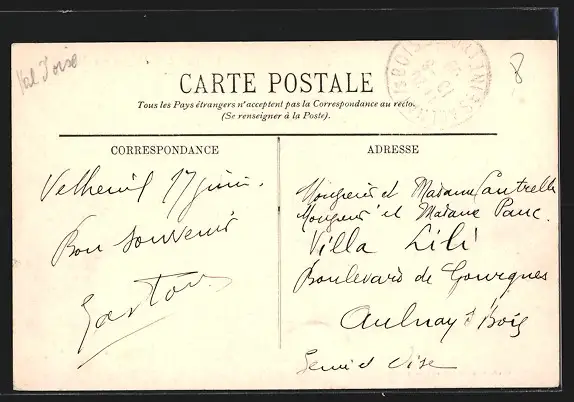 Val d'oise
8
CARTE POSTALE
Tous les Pays étrangers n'acceptent pas la Correspondance au recto.
(Se renseigner à la Poste).
CORRESPONDANCE
Vetheuil 17 juin.
Bon souvenir
Gaston
ADRESSE
Monsieur et Madame Cautrelle
Monsieur et Madame Panc.
Villa Lili
Boulevard de Gourgues
Aulnay s Bois
Seine et Oise